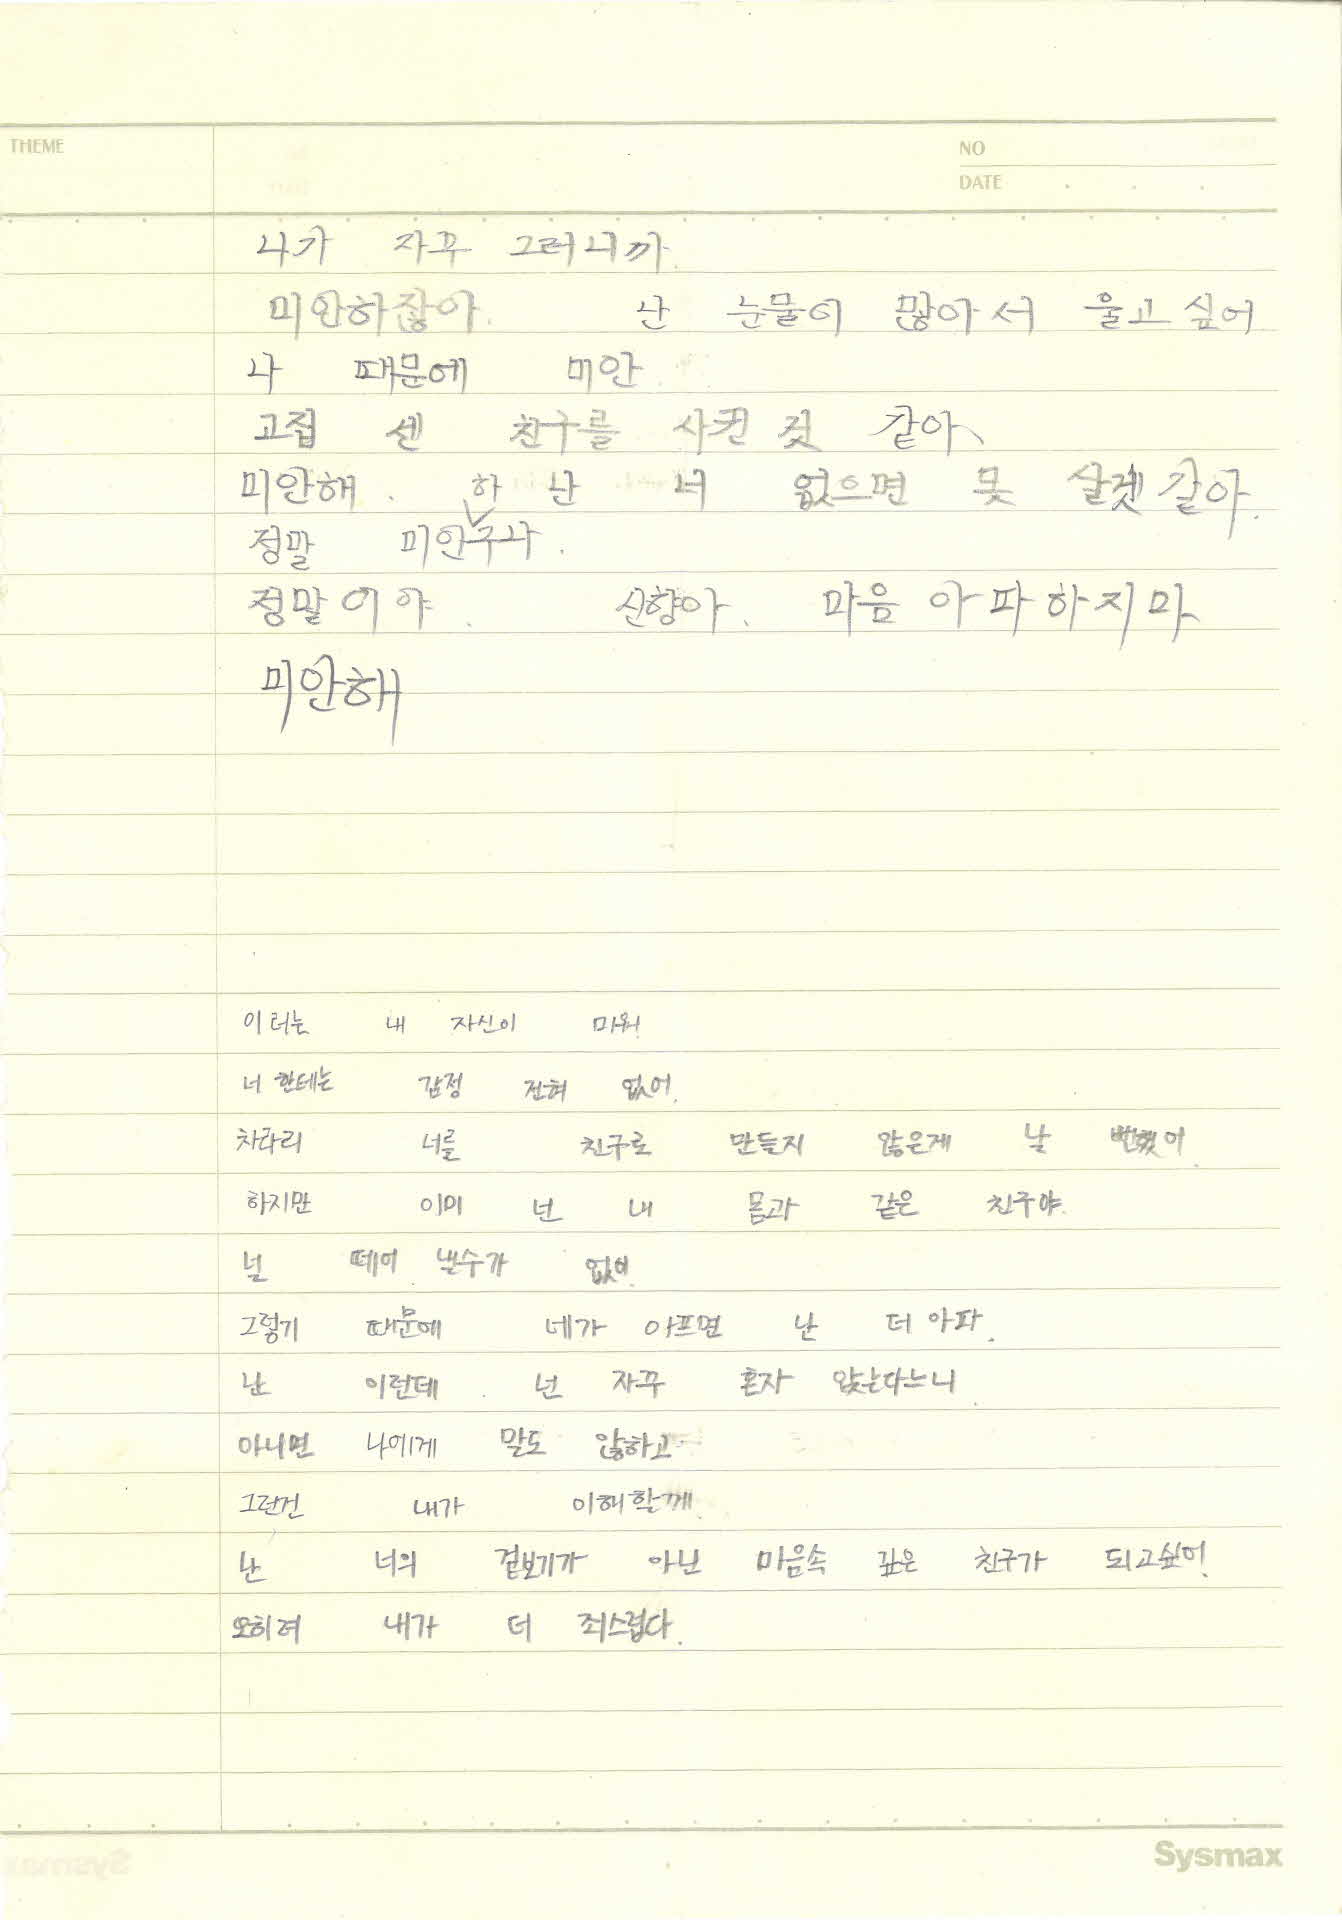 THEME
NO
DATE
니가 자꾸 그러니까
미안하잖아. 난 눈물이 많아서 울고싶어
나 때문에 미안
고집 센 친구를 사귄 것 같아
미안해. 난 너 없으면 못 살겟 같아.
정말 미안하구나.
정말이야. 신향아. 마음 아파하지마
미안해
이러는 내 자신이 미워!
너 한테는 감정 전혀 없어.
차라리 너를 친구로 만들지 않은게 날 뻔했어.
하지만 이미 넌 내 몸과 같은 친구야.
널 떼어 낼수가 없어.
그렇기 때문에 네가 아프면 난 더 아파.
난 이런데. 넌 자꾸 혼자 앉는다느니
아니면 나에게 말도 않하고
그런건 내가 이해할께.
난 너의 겉보기가 아닌 마음속 깊은 친구가 되고싶어!
오히려 내가 더 죄스럽다.
Sysmax